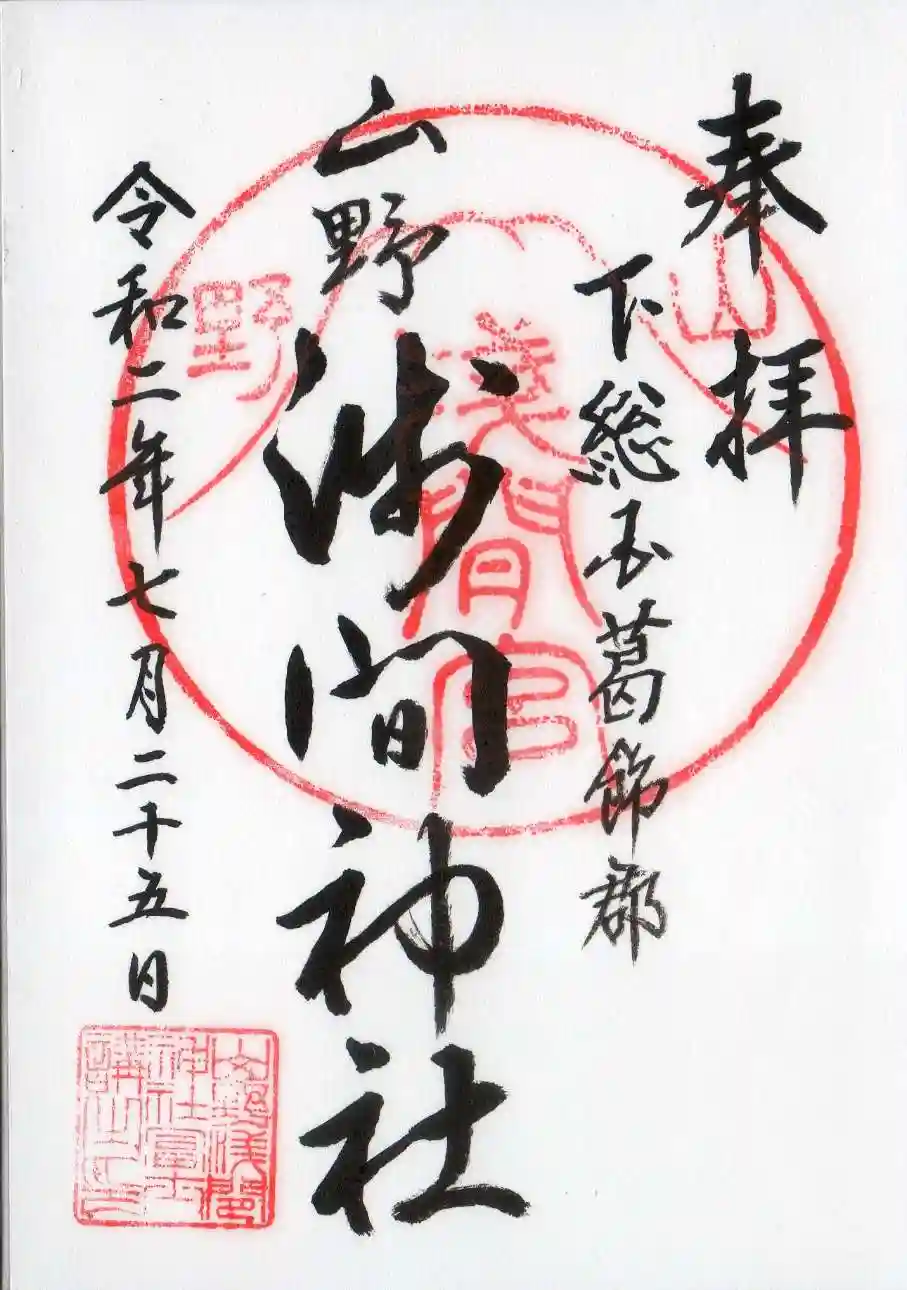 奉拝
下総国葛飾郡
山野浅間神社
令和二年七月二十五日
山野
淺間宮